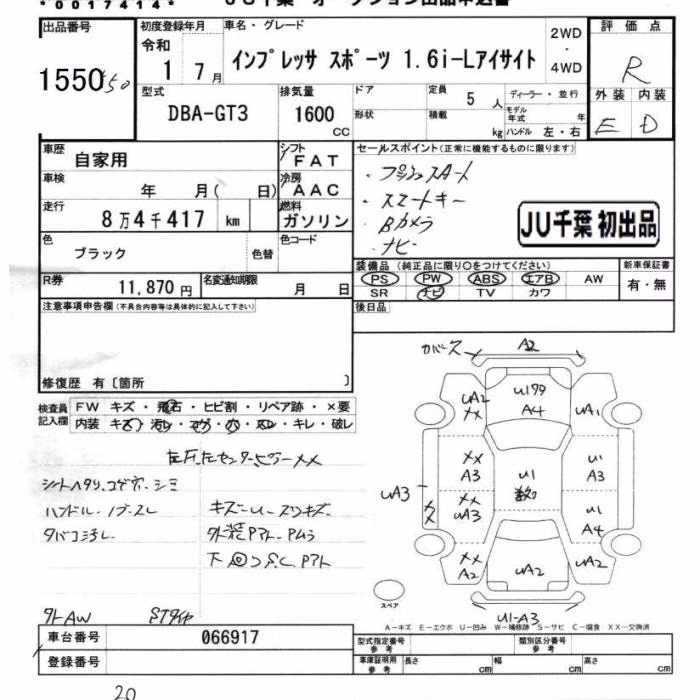 *00174174*
JU千葉 オークション出品申込書
出品番号 初度登録年月 車名・グレード 評価点
1550 令和 1 7月 インプレッサ スポーツ 1.6i-Lアイサイト 2WD・4WD R
型式 DBA-GT3 排気量 1600 CC ドア 形状 定員 5 人 積載 kg ディーラー・並行 モデル年式 年 ハンドル 左・右 外装 E 内装 D
車歴 自家用 シフト FAT セールスポイント(正常に機能するものに限ります)
車検 年 月( 日) 冷房 AAC ・プッシュスタート
走行 8万4千417 km 燃料 ガソリン ・スマートキー
色 ブラック 色替 色コード ・Bカメラ
・ナビ
JU千葉 初出品
R券 11,870円 名変通知期限 月 日
装備品(純正品に限り〇をつけてください) 新車保証書
PS PW ABS エアB AW 有・無
SR ナビ TV カワ
注意事項申告欄(不具合内容等は具体的に記入して下さい) 後日品
修復歴 有〔箇所 〕
検査員記入欄 FW キズ・飛石・ヒビ割・リペア跡・×要
内装 キズ・汚レ・コゲ・穴・スレ・キレ・破レ
シートヘタリ、コゲ穴、シミ
ハンドル・ノブスレ キズ・U・スリキズ
タバコ汚レ 外装PアトPムラ
下回り
外AW STタイヤ
カバーズ A2
UA2 XX U199 A4 UA1
XX A3 U1 U A3
UA3 XX XX UA3 U1 A4
XX A2 UA2 UA2
U1-A3
スペア
A-キズ E-エクボ U-凹み W-補修跡 S-サビ C-腐食 XX-交換済
車台番号 066917 型式指定番号 参考 類別区分番号 参考
登録番号 車庫証明用 参考 長さ cm 幅 cm 高さ cm
20